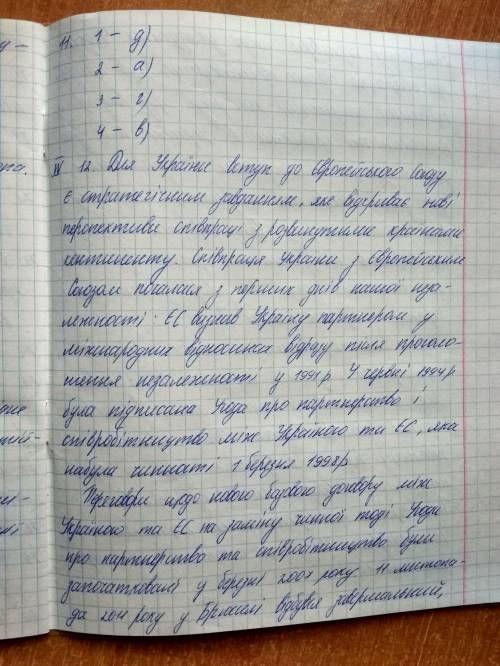 11. 1 – д)
2 – а)
3 – г)
4 – в)
IV 12. Для України вступ до Європейського Союзу
є стратегічним завданням, яке відкриває нові
перспективи співпраці з розвинутими країнами
континенту. Співпраця України з Європейським
Союзом почалася з перших днів нашої неза-
лежності. ЄС визнав Україну партнером у
міжнародних відносинах відразу після проголо-
шення незалежності у 1991 р. У червні 1994 р
була підписана Угода про партнерство і
співробітництво між Україною та ЄС, яка
набула чинності 1 березня 1998 р.
Переговори щодо нового базового договору між
Україною та ЄС на заміну чинної тоді Угоди
про партнерство та співробітництво були
започатковані у березні 2007 року. 11 листопа-
да 2011 року у Брюсселі відбувся завершальний,